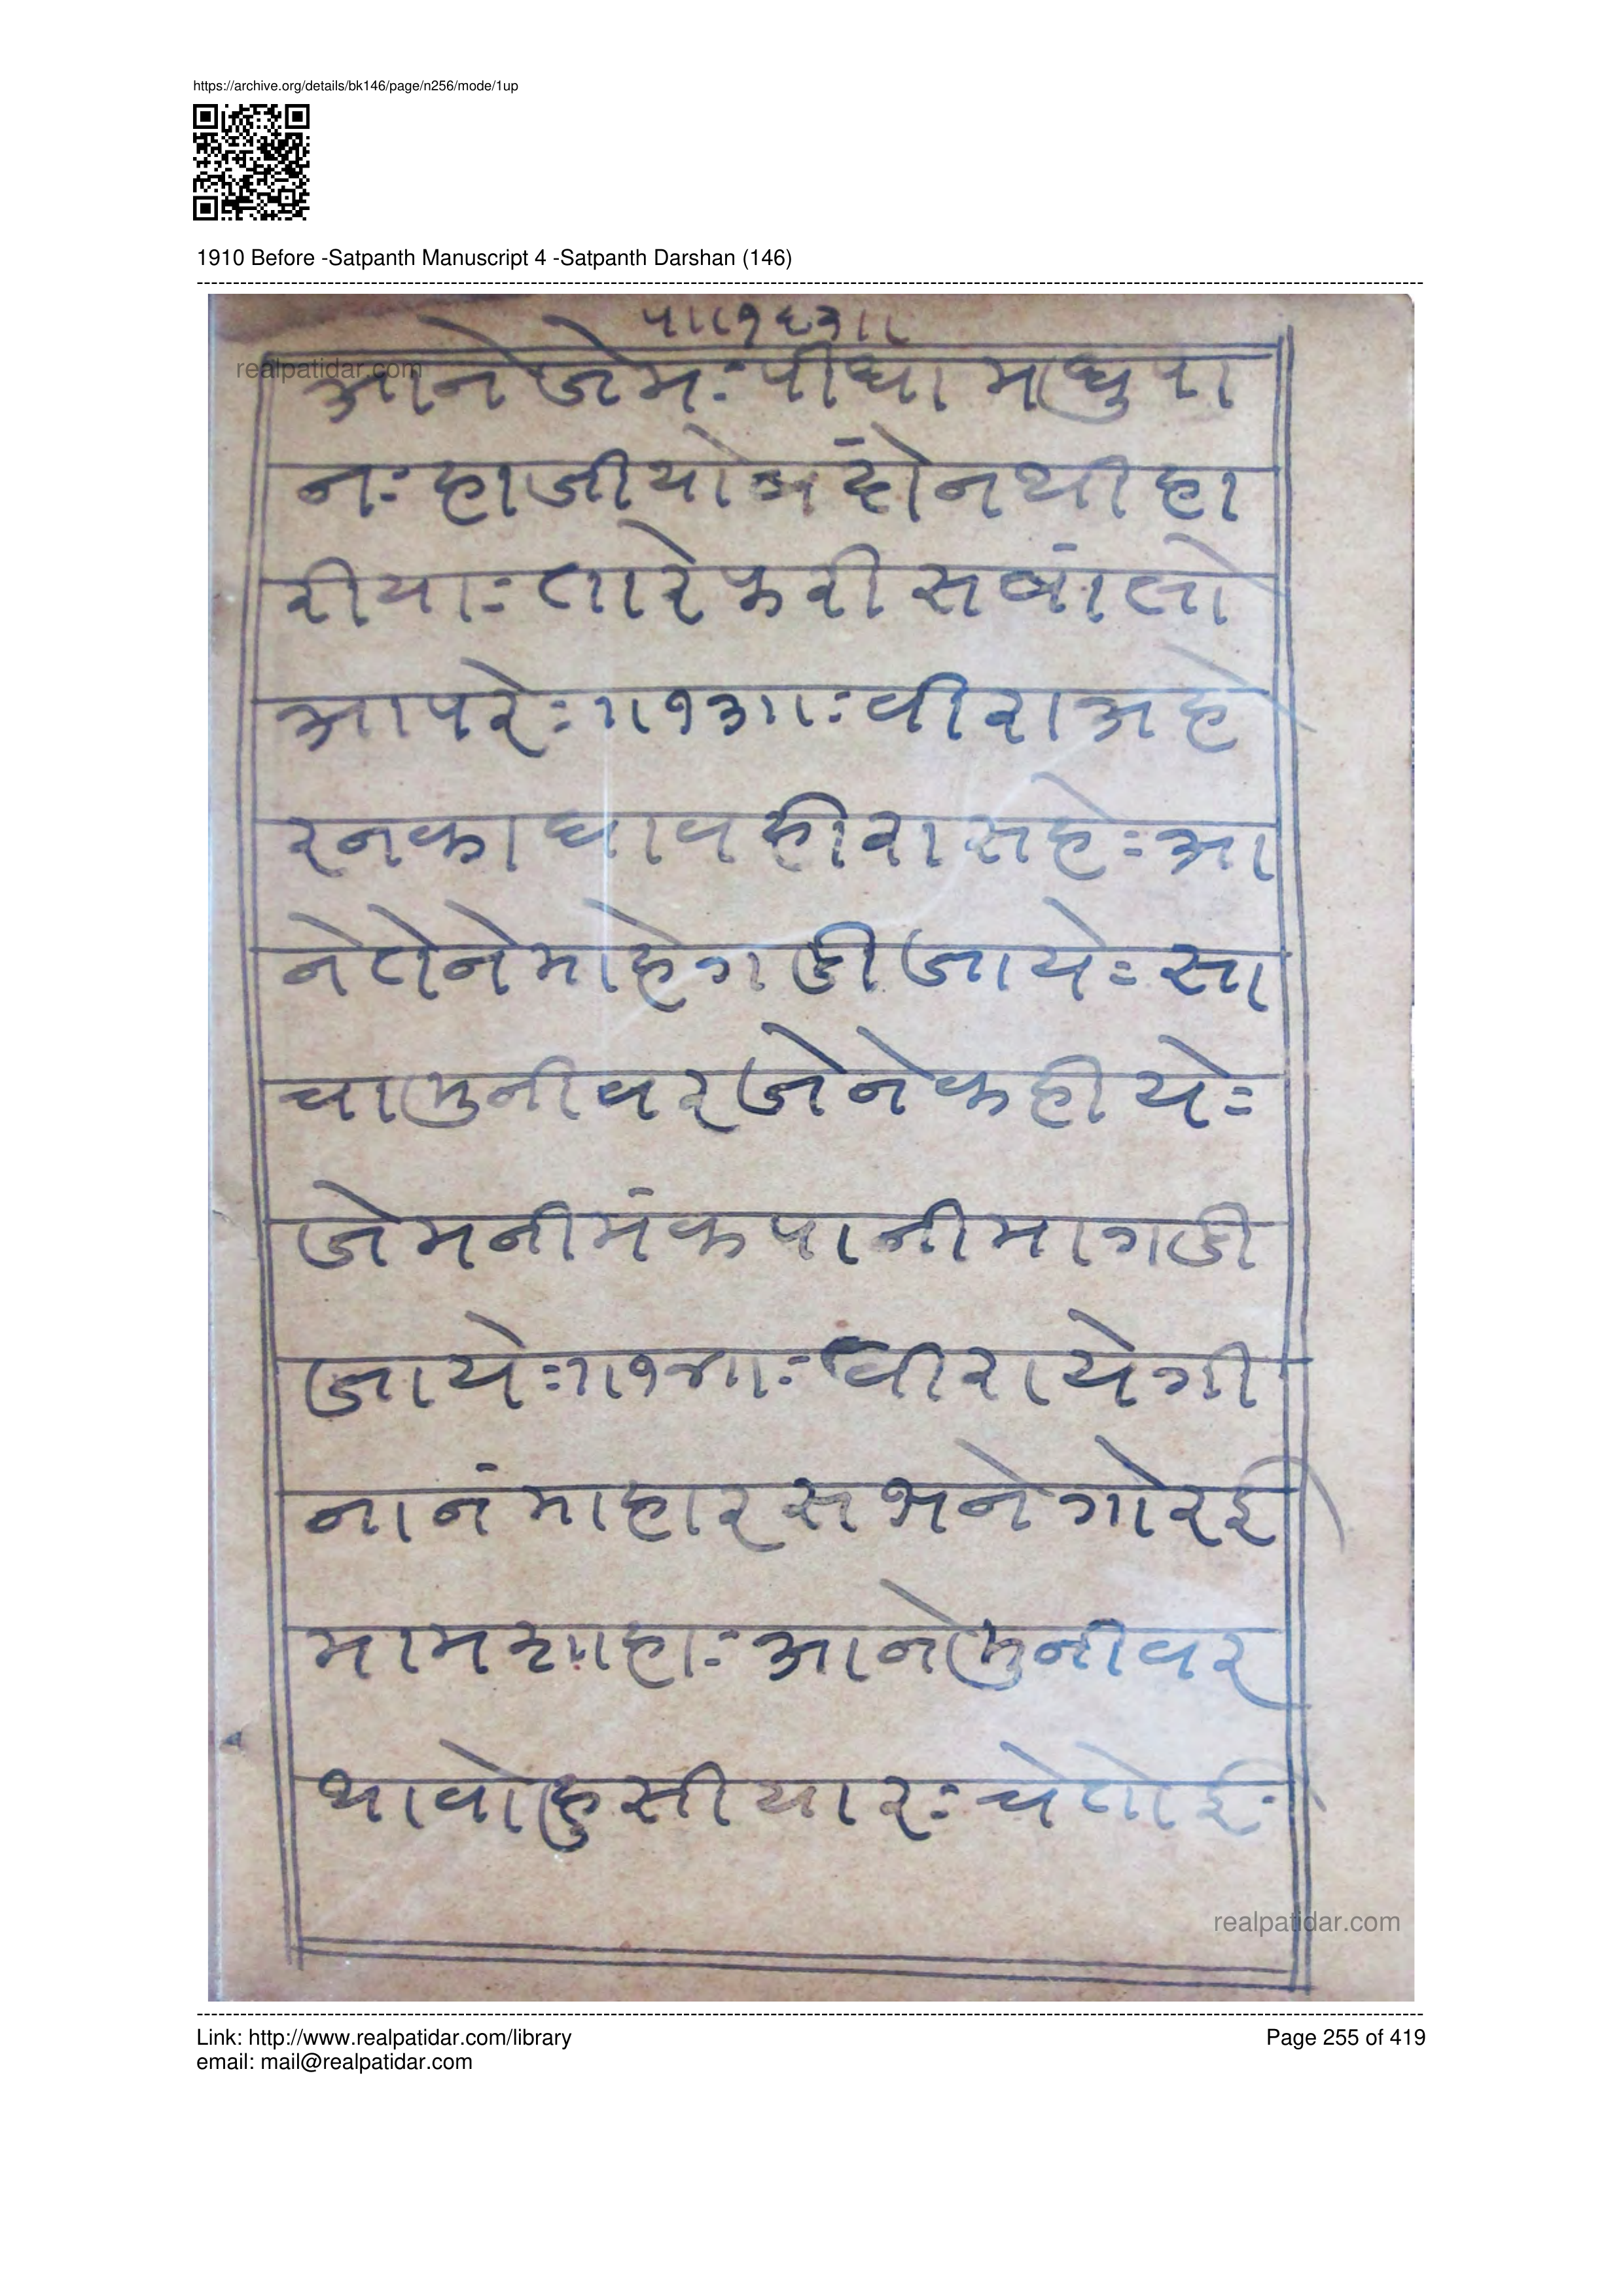 https://archive.org/details/bk146/page/n256/mode/1up
1910 Before -Satpanth Manuscript 4 -Satpanth Darshan (146)
प॥१६२॥
realpatidar.com
आने जेमः पीधा मधुपा
नः हाजीयो नथी हा
रीयाः तारे करी सवां लो
आपरेः॥१३॥ः वीरा अहे
रनका घाव हीरा सहेः आ
ने तेने माहे गडी जायेः सा
चा मुनीवर जेने कहीयेः
जेम नीमंक पानी मा गडी
जायेः॥१४॥ः वीरा येगी
नानं माहारस भने गोरई
माम शाहाः आने मुनीवर
थावो हुसीयारः चेतो ई
realpatidar.com
Link: http://www.realpatidar.com/library
Page 255 of 419
email: mail@realpatidar.com